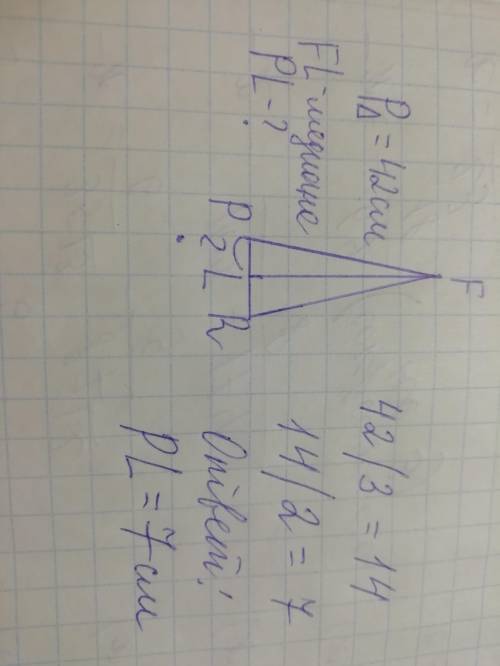 P△ = 42 см
FL - медиана
PL - ?
F
P
?
L
R
42/3 = 14
14/2 = 7
Ответ:
PL = 7 см